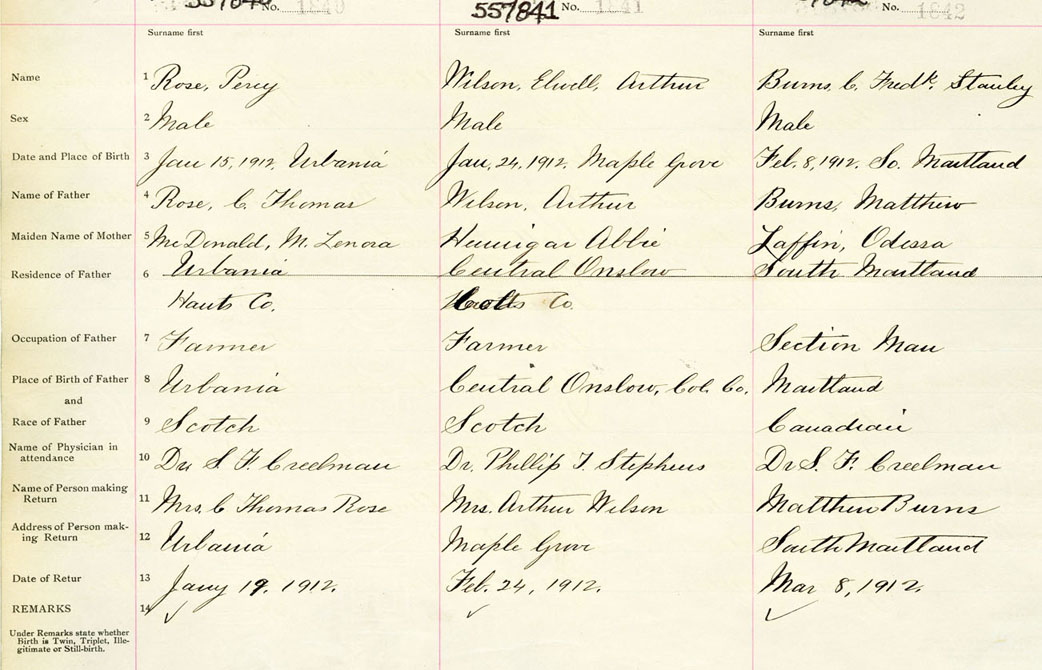 No. 1840 557841 No. 1841 No. 1842
Surname first Surname first Surname first
Name 1 Rose, Percy Wilson, Elwell, Arthur Burns, C. Fredk. Stanley
Sex 2 Male Male Male
Date and Place of Birth 3 Jan 15, 1912, Urbania Jan, 24, 1912, Maple Grove Feb. 8, 1912. So. Maitland
Name of Father 4 Rose, C. Thomas Wilson, Arthur Burns, Matthew
Maiden Name of Mother 5 Mc Donald, M. Lenora Hennigar Abbie Laffin, Odessa
Residence of Father 6 Urbania Central Onslow South Maitland
Hants Co. Co.
Occupation of Father 7 Farmer Farmer Section Man
Place of Birth of Father 8 Urbania Central Onslow, Col. Co. Maitland
and
Race of Father 9 Scotch Scotch Canadian
Name of Physician in
attendance 10 Dr. S. F. Creelman Dr. Phillip T. Stephens Dr S. F. Creelman
Name of Person making
Return 11 Mrs. C Thomas Rose Mrs. Arthur Wilson Matthew Burns
Address of Person mak-
ing Return 12 Urbania Maple Grove South Maitland
Date of Retur 13 Jany 19. 1912. Feb. 24, 1912. Mar 8, 1912.
REMARKS 14
Under Remarks state whether
Birth is Twin, Triplet, Ille-
gitimate or Still-birth.